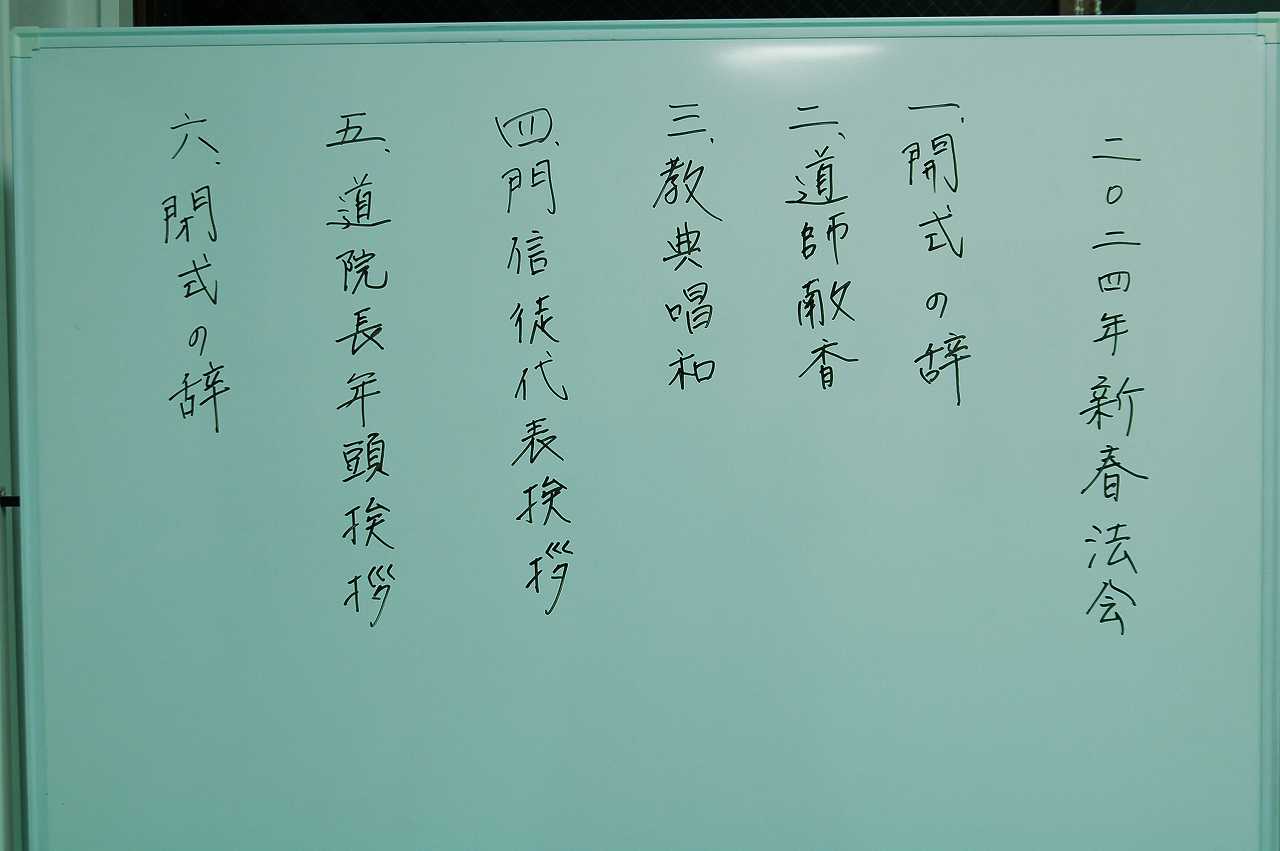 二〇二四年新春法会
一、開式の辞
二、道師献香
三、教典唱和
四、門信徒代表挨拶
五、道院長年頭挨拶
六、閉式の辞